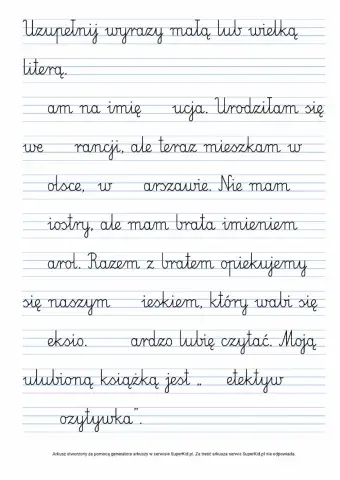 Uzupełnij wyrazy małą lub wielką
literą.
am na imię ucja. Urodziłam się
we rancji, ale teraz mieszkam w
olsce, w arszawie. Nie mam
iostry, ale mam brata imieniem
arol. Razem z bratem opiekujemy
się naszym ieskiem, który wabi się
eksio. ardzo lubię czytać. Moją
ulubioną książką jest „ etektyw
ozytywka”.
Arkusz utworzony za pomocą generatora arkuszy w serwisie SuperKid.pl. Za treść arkusza serwis SuperKid.pl nie odpowiada.